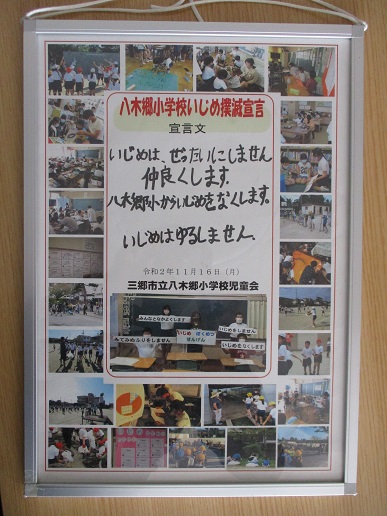 八木郷小学校いじめ撲滅宣言
宣言文
いじめは、ぜったいにしません
仲良くします。
八木郷小からいじめをなくします。
いじめはゆるしません。
令和2年11月16日(月)
三郷市立八木郷小学校児童会
みんなとなかよくします
いじめをしません
みてみぬふりをしません
いじめ ぼくめつ
せんげん
いじめをなくします